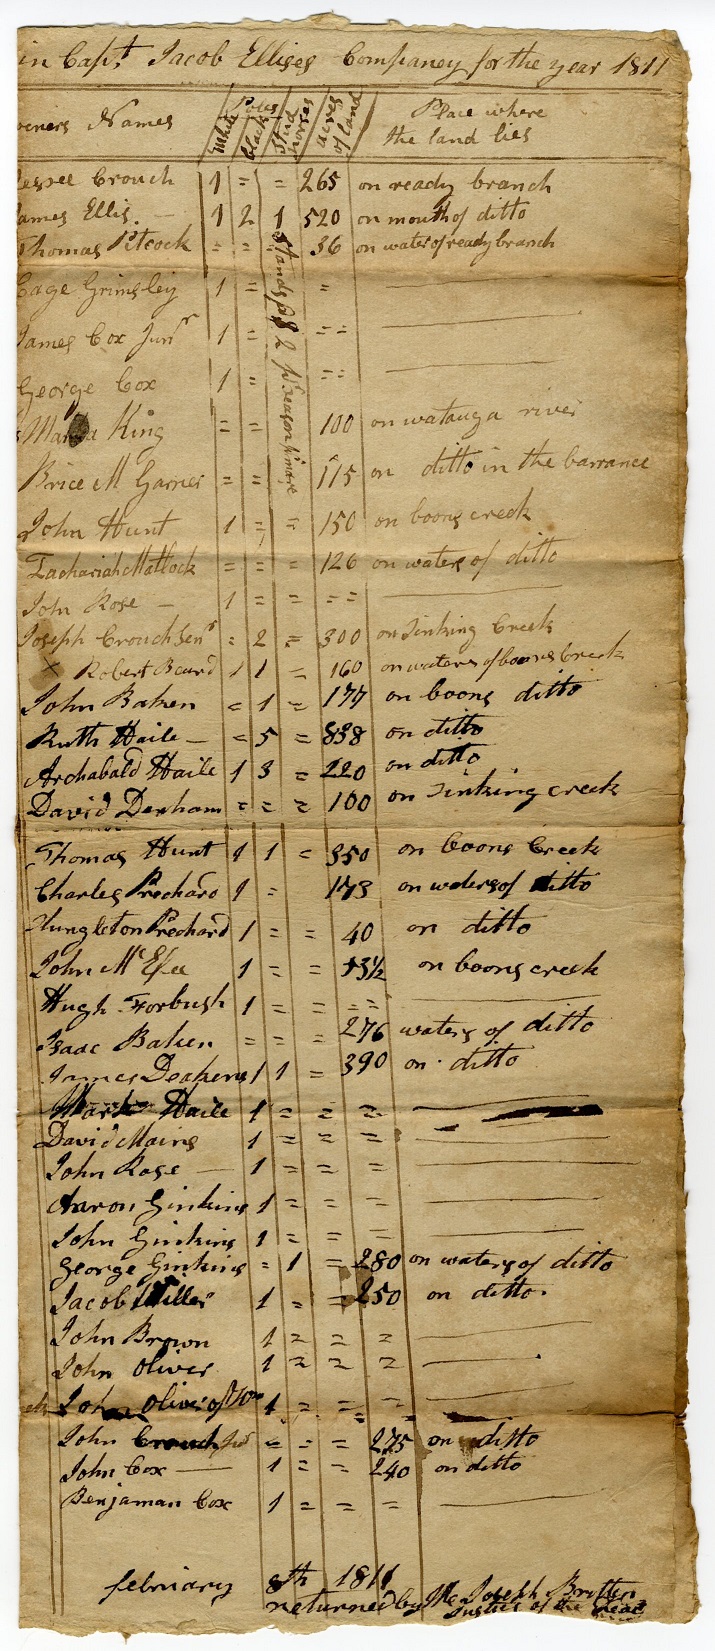 in Capt Jacob Ellises Compainey for the year 1811
owners Names White Poles black Stud horses acres of land Place where the land lies
Jessee Crouch 1 = = 265 on ready branch
James Ellis. — 1 2 1 520 on mouth of ditto
Thomas Pitcock = = = 36 on water of ready branch
Stands at $ 2 pr Season pr mare
Cage Grimsley 1 = =
James Cox Junr 1 = = =
George Cox 1 = = =
King = = 100 on watauga river
Brice M Garner = = 115 on ditto in the barrance
John Hunt 1 = = 150 on boons creek
Zachariah Matlock = = = 126 on waters of ditto
John Rose — 1 = = = =
Joseph Crouch Senr = 2 = 300 on Sinking Creek
X Robert Beard 1 1 = 160 on waters of boons Creek
John Baken = 1 = 177 on boons ditto
Ruth Haile — = 5 = 838 on ditto
Archabald Haile 1 3 = 220 on ditto
David Denham = = = 100 on Sinking creek
Thomas Hunt 1 1 = 350 on boons Creek
Charles Prechard 1 = 173 on waters of ditto
Prechard 1 = = 40 on ditto
John McEfee 1 = = 13½ on boons creek
Hugh Forbush 1 = = = =
Isaac Baken = = = 276 waters of ditto
James Deakens 1 1 = 390 on ditto
Mark Haile 1 = = =
David Mains 1 = = =
John Rose — 1 = = =
Aaron Ginkins 1 = = =
John Ginkins 1 = = =
George Ginkins = 1 = 280 on waters of ditto
Jacob Miller 1 = = 250 on ditto.
John Brown 1 = = =
John Oliver 1 = = =
John Oliver of Wm 1 = = =
John Crouch Jur = = = 275 on ditto
John Cox — 1 = = 240 on ditto
Benjaman Cox 1 = = =
february 8th 1811
returned by Me Joseph Britten
Justies of the Peac